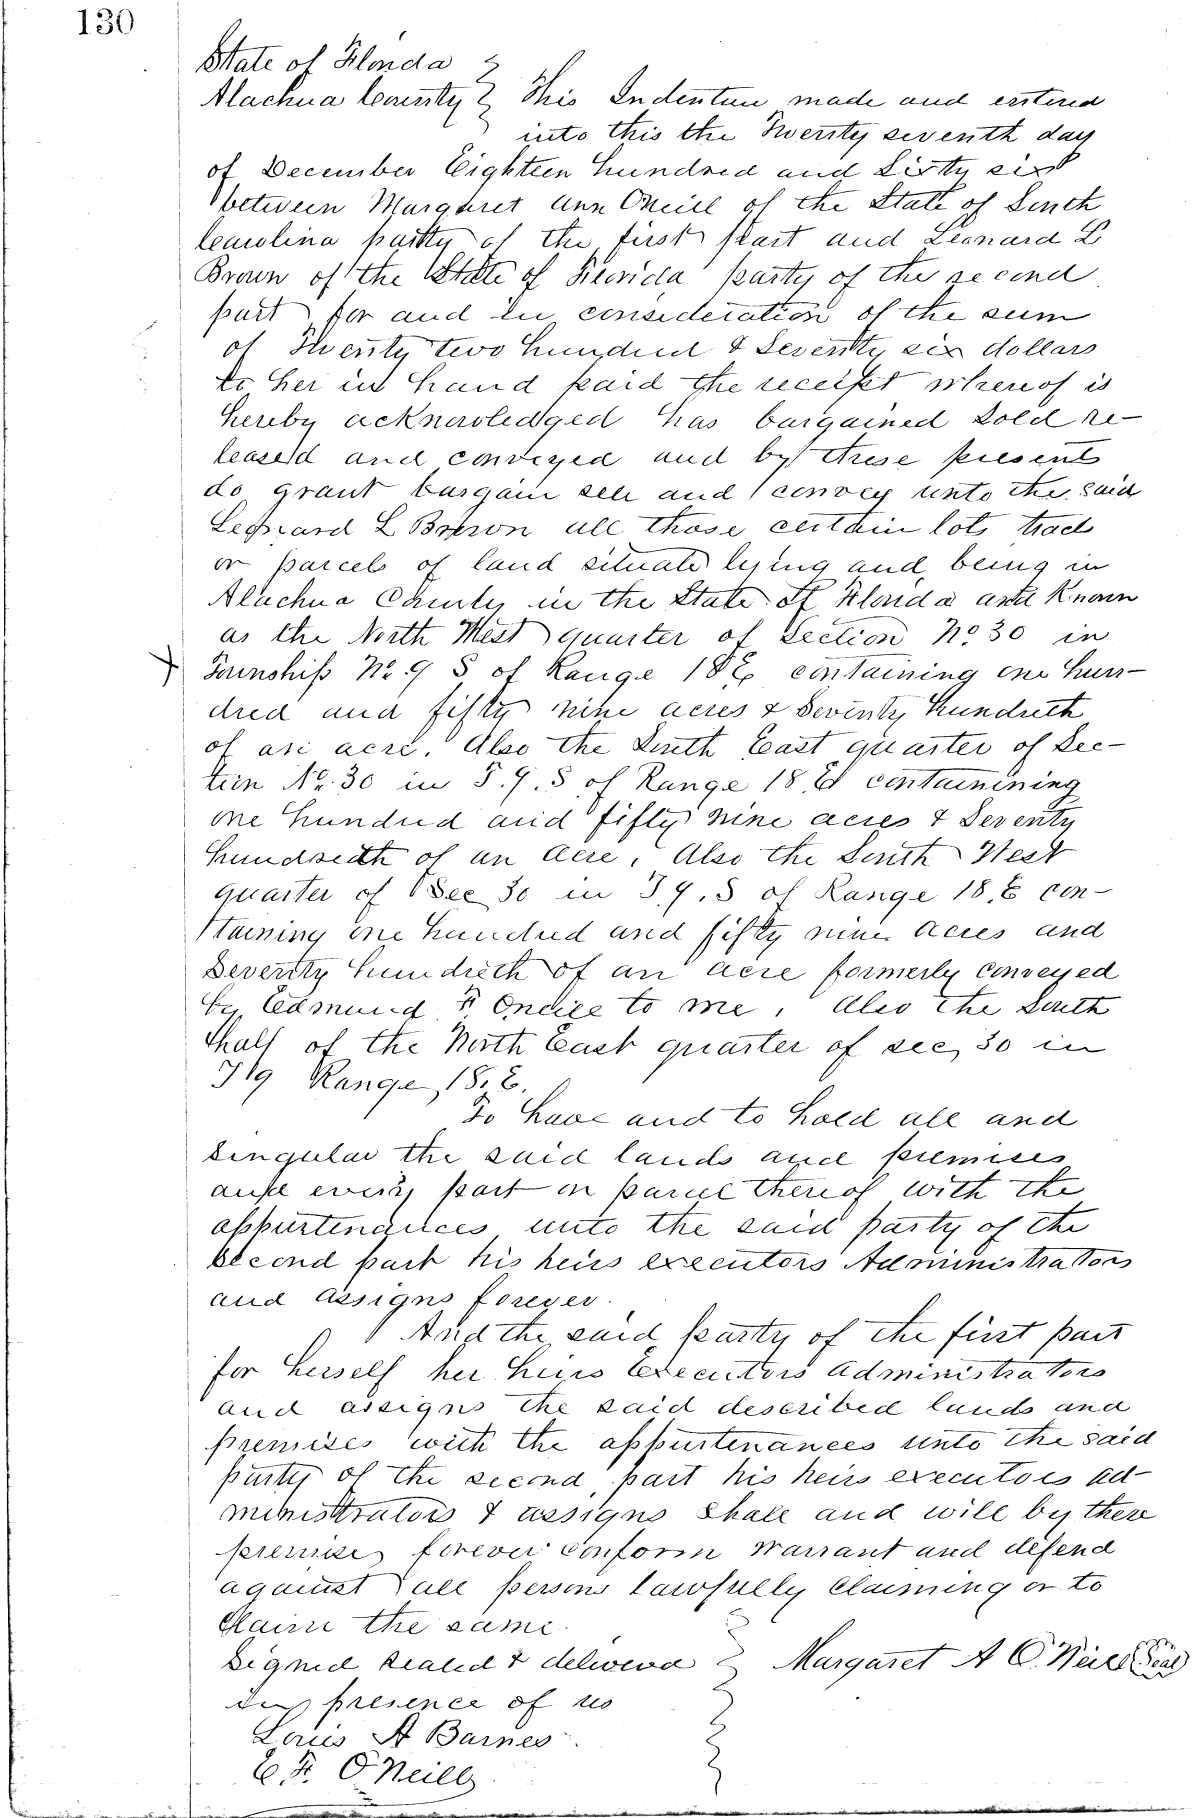 130
State of Florida
Alachua County } This Indenture made and entered
into this the Twenty seventh day
of December Eighteen hundred and Sixty six
between Margaret Ann Oneill of the State of South
Carolina party of the first part and Leonard L
Brown of the State of Florida party of the second
part for and in consideration of the sum
of Twenty two hundred & Seventy six dollars
to her in hand paid the receipt whereof is
hereby acknowledged has bargained sold re-
leased and conveyed and by these presents
do grant bargain sell and convey unto the said
Leonard L Brown all those certain lots tracts
or parcels of land situate lying and being in
Alachua County in the State of Florida and Known
as the North West quarter of Section No 30 in
Township No 9 S of Range 18 E containing one hun-
dred and fifty nine acres & Seventy hundreth
of an acre. Also the South East quarter of Sec-
tion No. 30 in T. 9. S of Range 18 E containining
one hundred and fifty nine acres & Seventy
hundredth of an acre, Also the South West
quarter of Sec 30 in T 9. S of Range 18. E con-
taining one hundred and fifty nine acres and
Seventy hundreth of an acre formerly conveyed
by Edmund F Oneill to me, Also the South
half of the North East quarter of sec, 30 in
T 9 Range, 18. E.
To have and to hold all and
singular the said lands and premises
and every part or parcel thereof with the
appurtenances unto the said party of the
second part his heirs executors Administrators
and assigns forever.
And the said party of the first part
for herself her heirs Executors administrators
and assigns the said described lands and
premises with the appurtenances unto the said
party of the second part his heirs executors ad-
ministrators & assigns shall and will by these
premises forever conform warrant and defend
against all persons lawfully claiming or to
claim the same.
Signed sealed & delivered } Margaret A O.Neill (Seal)
in presence of us
Louis A Barnes
E. F. O'Neill